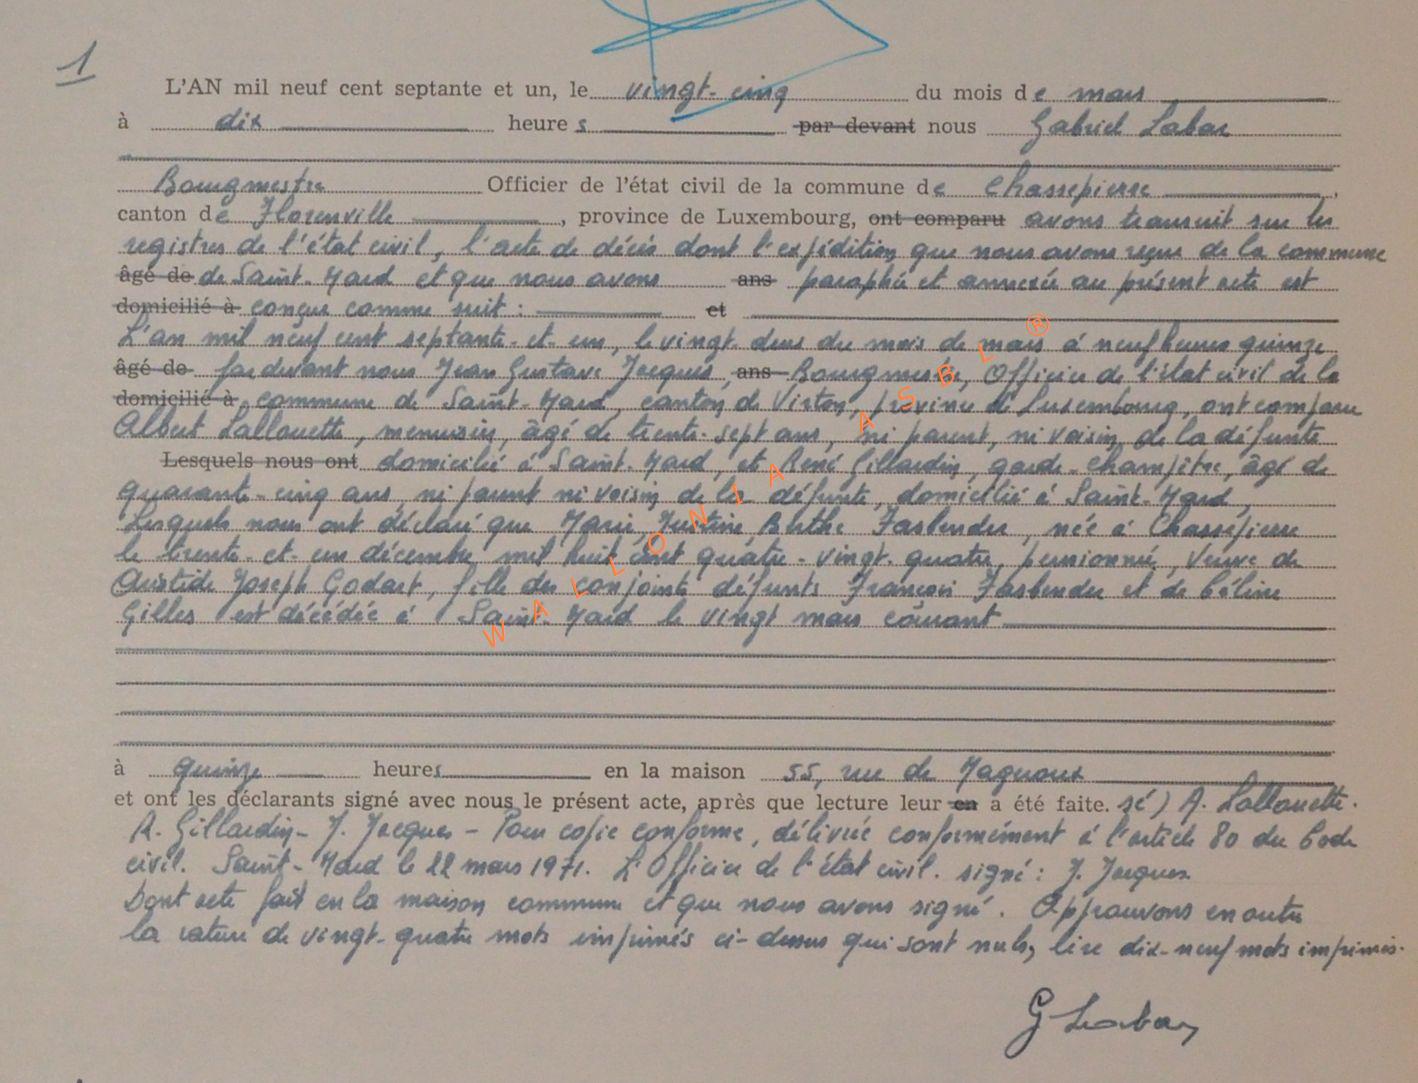 1
L'AN mil neuf cent septante et un, le vingt-cinq du mois de mars
à dix heures par devant nous Gabriel Labar
Bourgmestre Officier de l'état civil de la commune de Chassepierre,
canton de Florenville, province de Luxembourg, ont comparu avons transcrit sur les
registres de l'état civil, l'acte de décès dont l'expédition que nous avons reçue de la commune
âgé de de Saint-Mard et que nous avons ans paraphée et annexée au présent acte est
domicilié à conçue comme suit : et
L'an mil neuf cent septante-et-un, le vingt-deux du mois de mars à neuf heures quinze
âgé de par devant nous Jean Gustave Jacques, ans Bourgmestre, Officier de l'état civil de la
domicilié à commune de Saint-Mard, canton de Virton, province de Luxembourg, ont comparu
Albert Lallouette, menuisier, âgé de trente-sept ans, ni parent, ni voisin de la défunte
Lesquels nous ont domicilié à Saint-Mard, et René Gillardin, garde-champêtre, âgé de
quarante-cinq ans, ni parent ni voisin de la défunte, domicilié à Saint-Mard,
Lesquels nous ont déclaré que Marie Justine Berthe Fasbender, née à Chassepierre
le trente-et-un décembre mil huit cent quatre-vingt-quatre, pensionnée, veuve de
Aristide Joseph Godart, fille des conjoints défunts François Fasbender et de Céline
Gilles est décédée à Saint-Mard le vingt mars courant
à quinze heures en la maison 55, rue de
et ont les déclarants signé avec nous le présent acte, après que lecture leur en a été faite. sé) A. Lallouette.
R. Gillardin - J. Jacques - Pour copie conforme, délivrée conformément à l'article 80 du Code
civil. Saint-Mard le 22 mars 1971. L'Officier de l'état civil. signé : J. Jacques
Dont acte fait en la maison commune et que nous avons signé. Approuvons en outre
la rature de vingt-quatre mots imprimés ci-dessus qui sont nuls, lire dix-neuf mots imprimés.
G Labar
WALLONIA ASBL ®